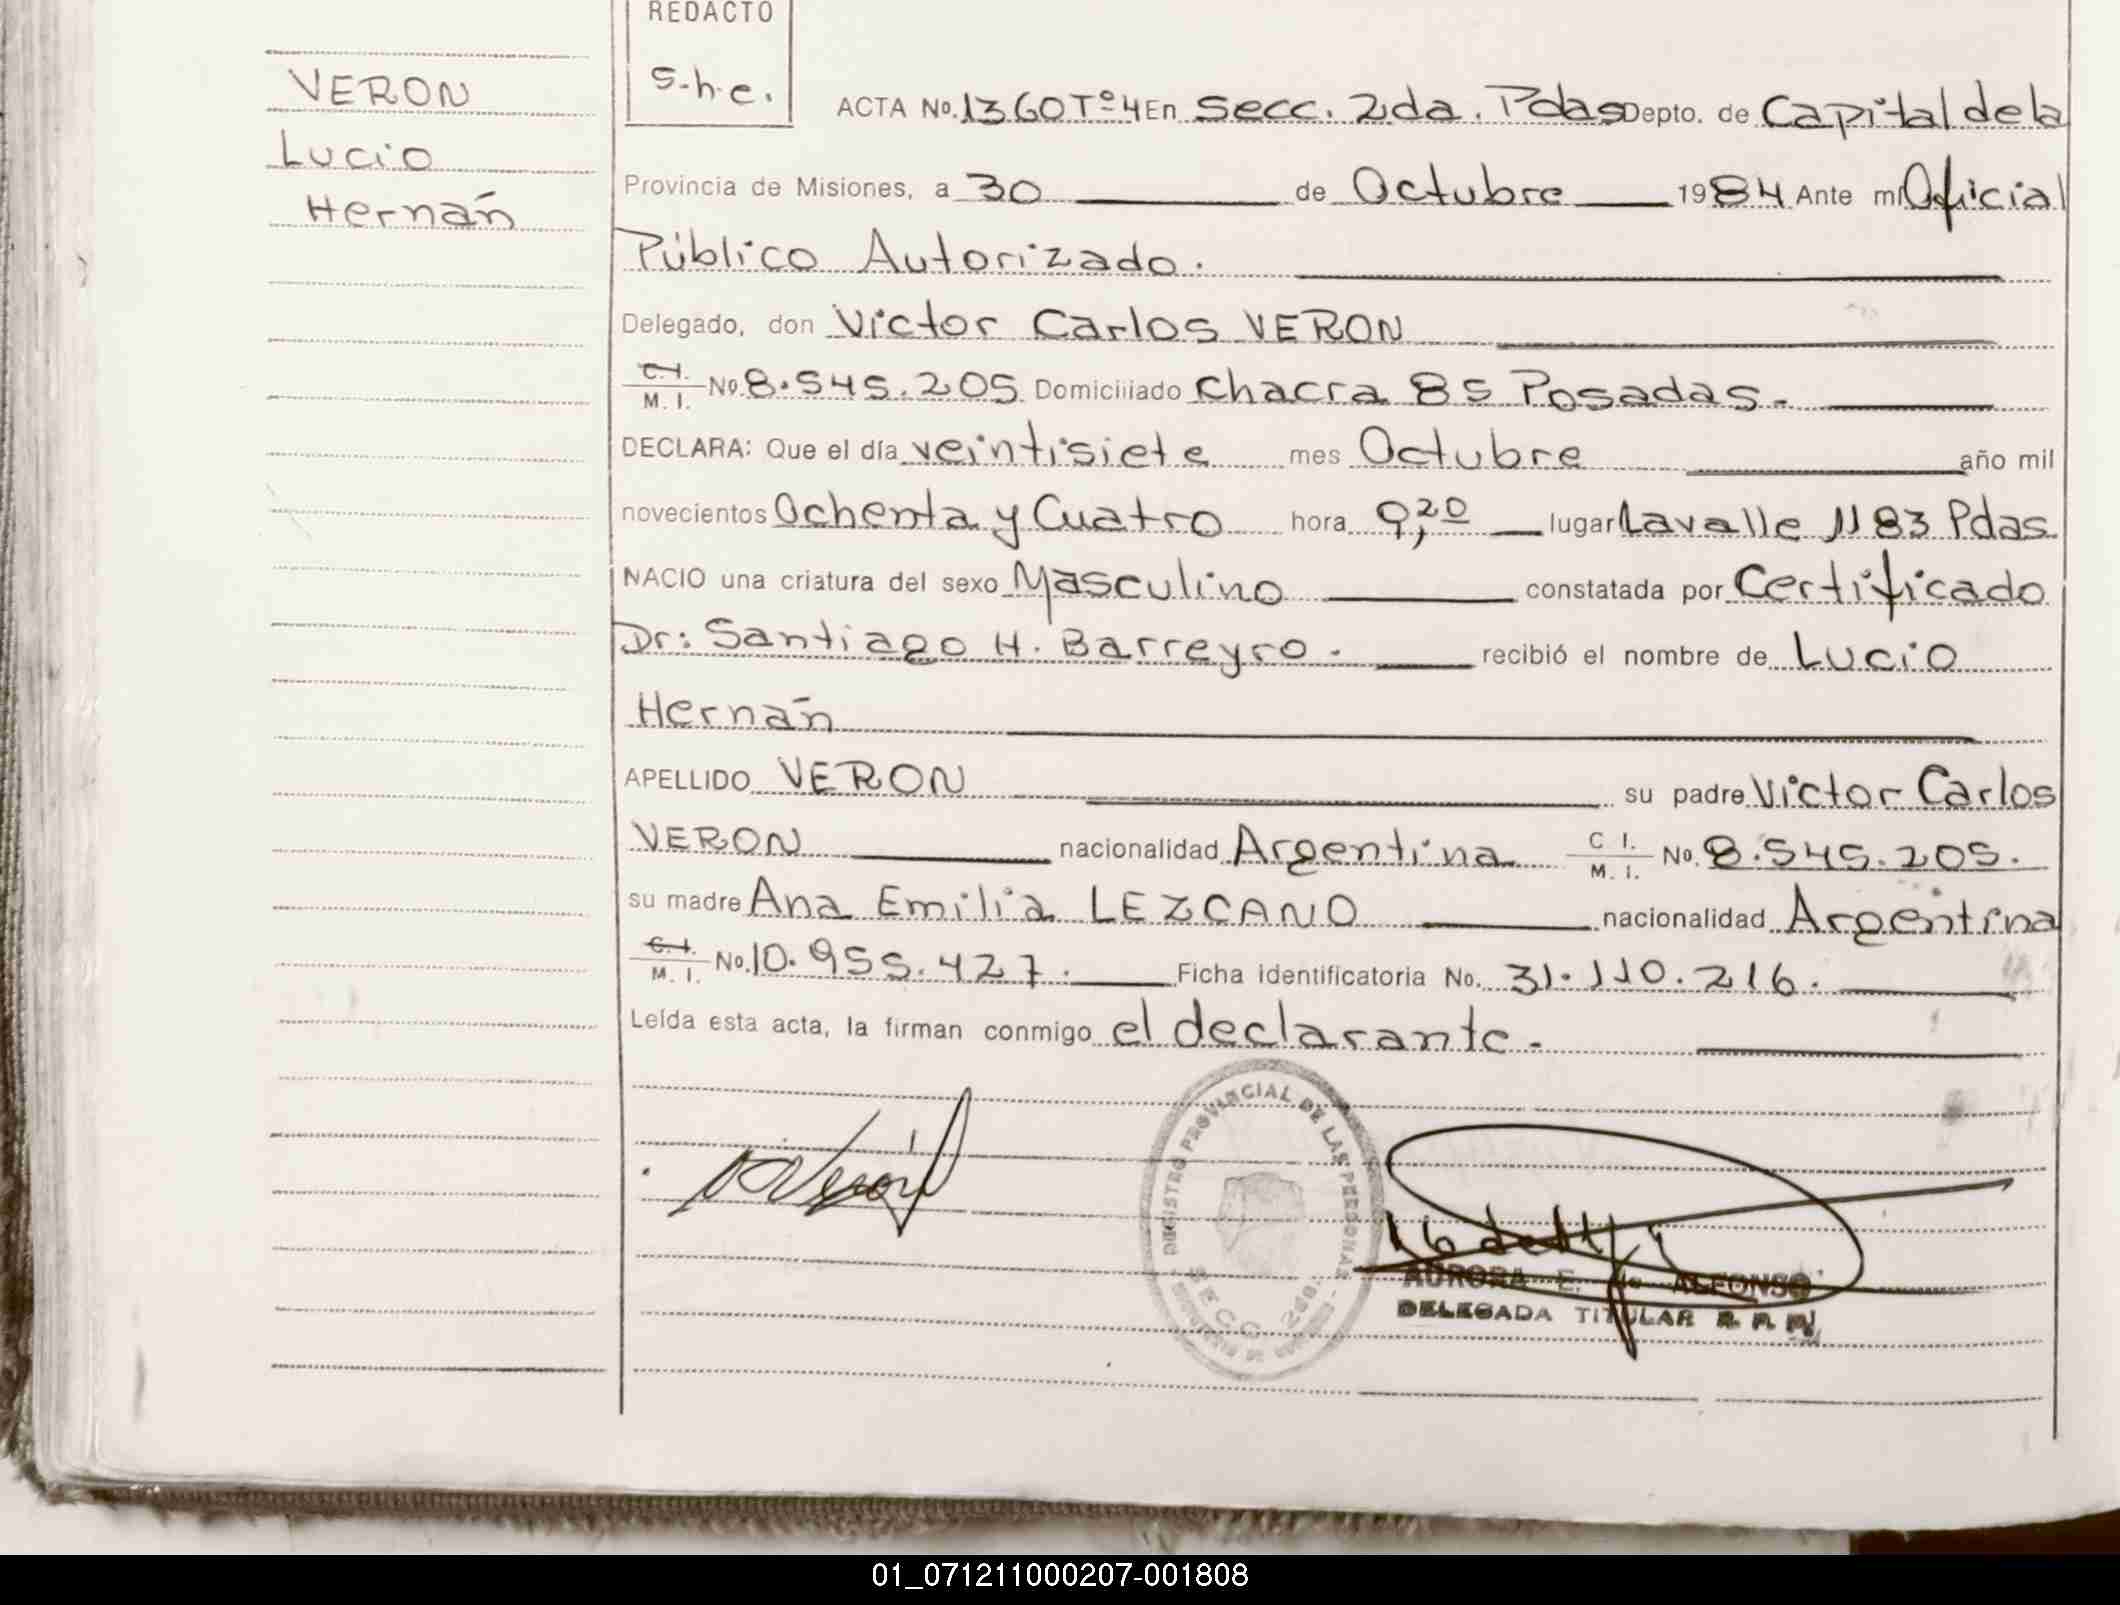 REDACTO
s.h.e.
VERON
Lucio
Hernán
ACTA No. 1360 Tº 4 En Secc. 2da. Pdas Depto. de Capital de la
Provincia de Misiones, a 30 de Octubre 1984 Ante mí Oficial
Público Autorizado.
Delegado, don Victor Carlos VERON
C. I. M. I. No. 8.545.205 Domiciliado Chacra 85 Posadas.
DECLARA: Que el día veintisiete mes Octubre año mil
novecientos Ochenta y Cuatro hora 9,20 lugar Lavalle 1183 Pdas.
NACIO una criatura del sexo Masculino constatada por Certificado
Dr: Santiago H. Barreyro. recibió el nombre de Lucio
Hernán
APELLIDO VERON su padre Victor Carlos
VERON nacionalidad Argentina C I. M. I. No. 8.545.205.
su madre Ana Emilia LEZCANO nacionalidad Argentina
C. I. M. I. No. 10.955.427. Ficha identificatoria No. 31.110.216.
Leída esta acta, la firman conmigo el declarante.
REGISTRO PROVINCIAL DE LAS PERSONAS
SECC. 2da.
AURORA E. de ALFONSO
DELEGADA TITULAR R. P. P.
01_071211000207-001808